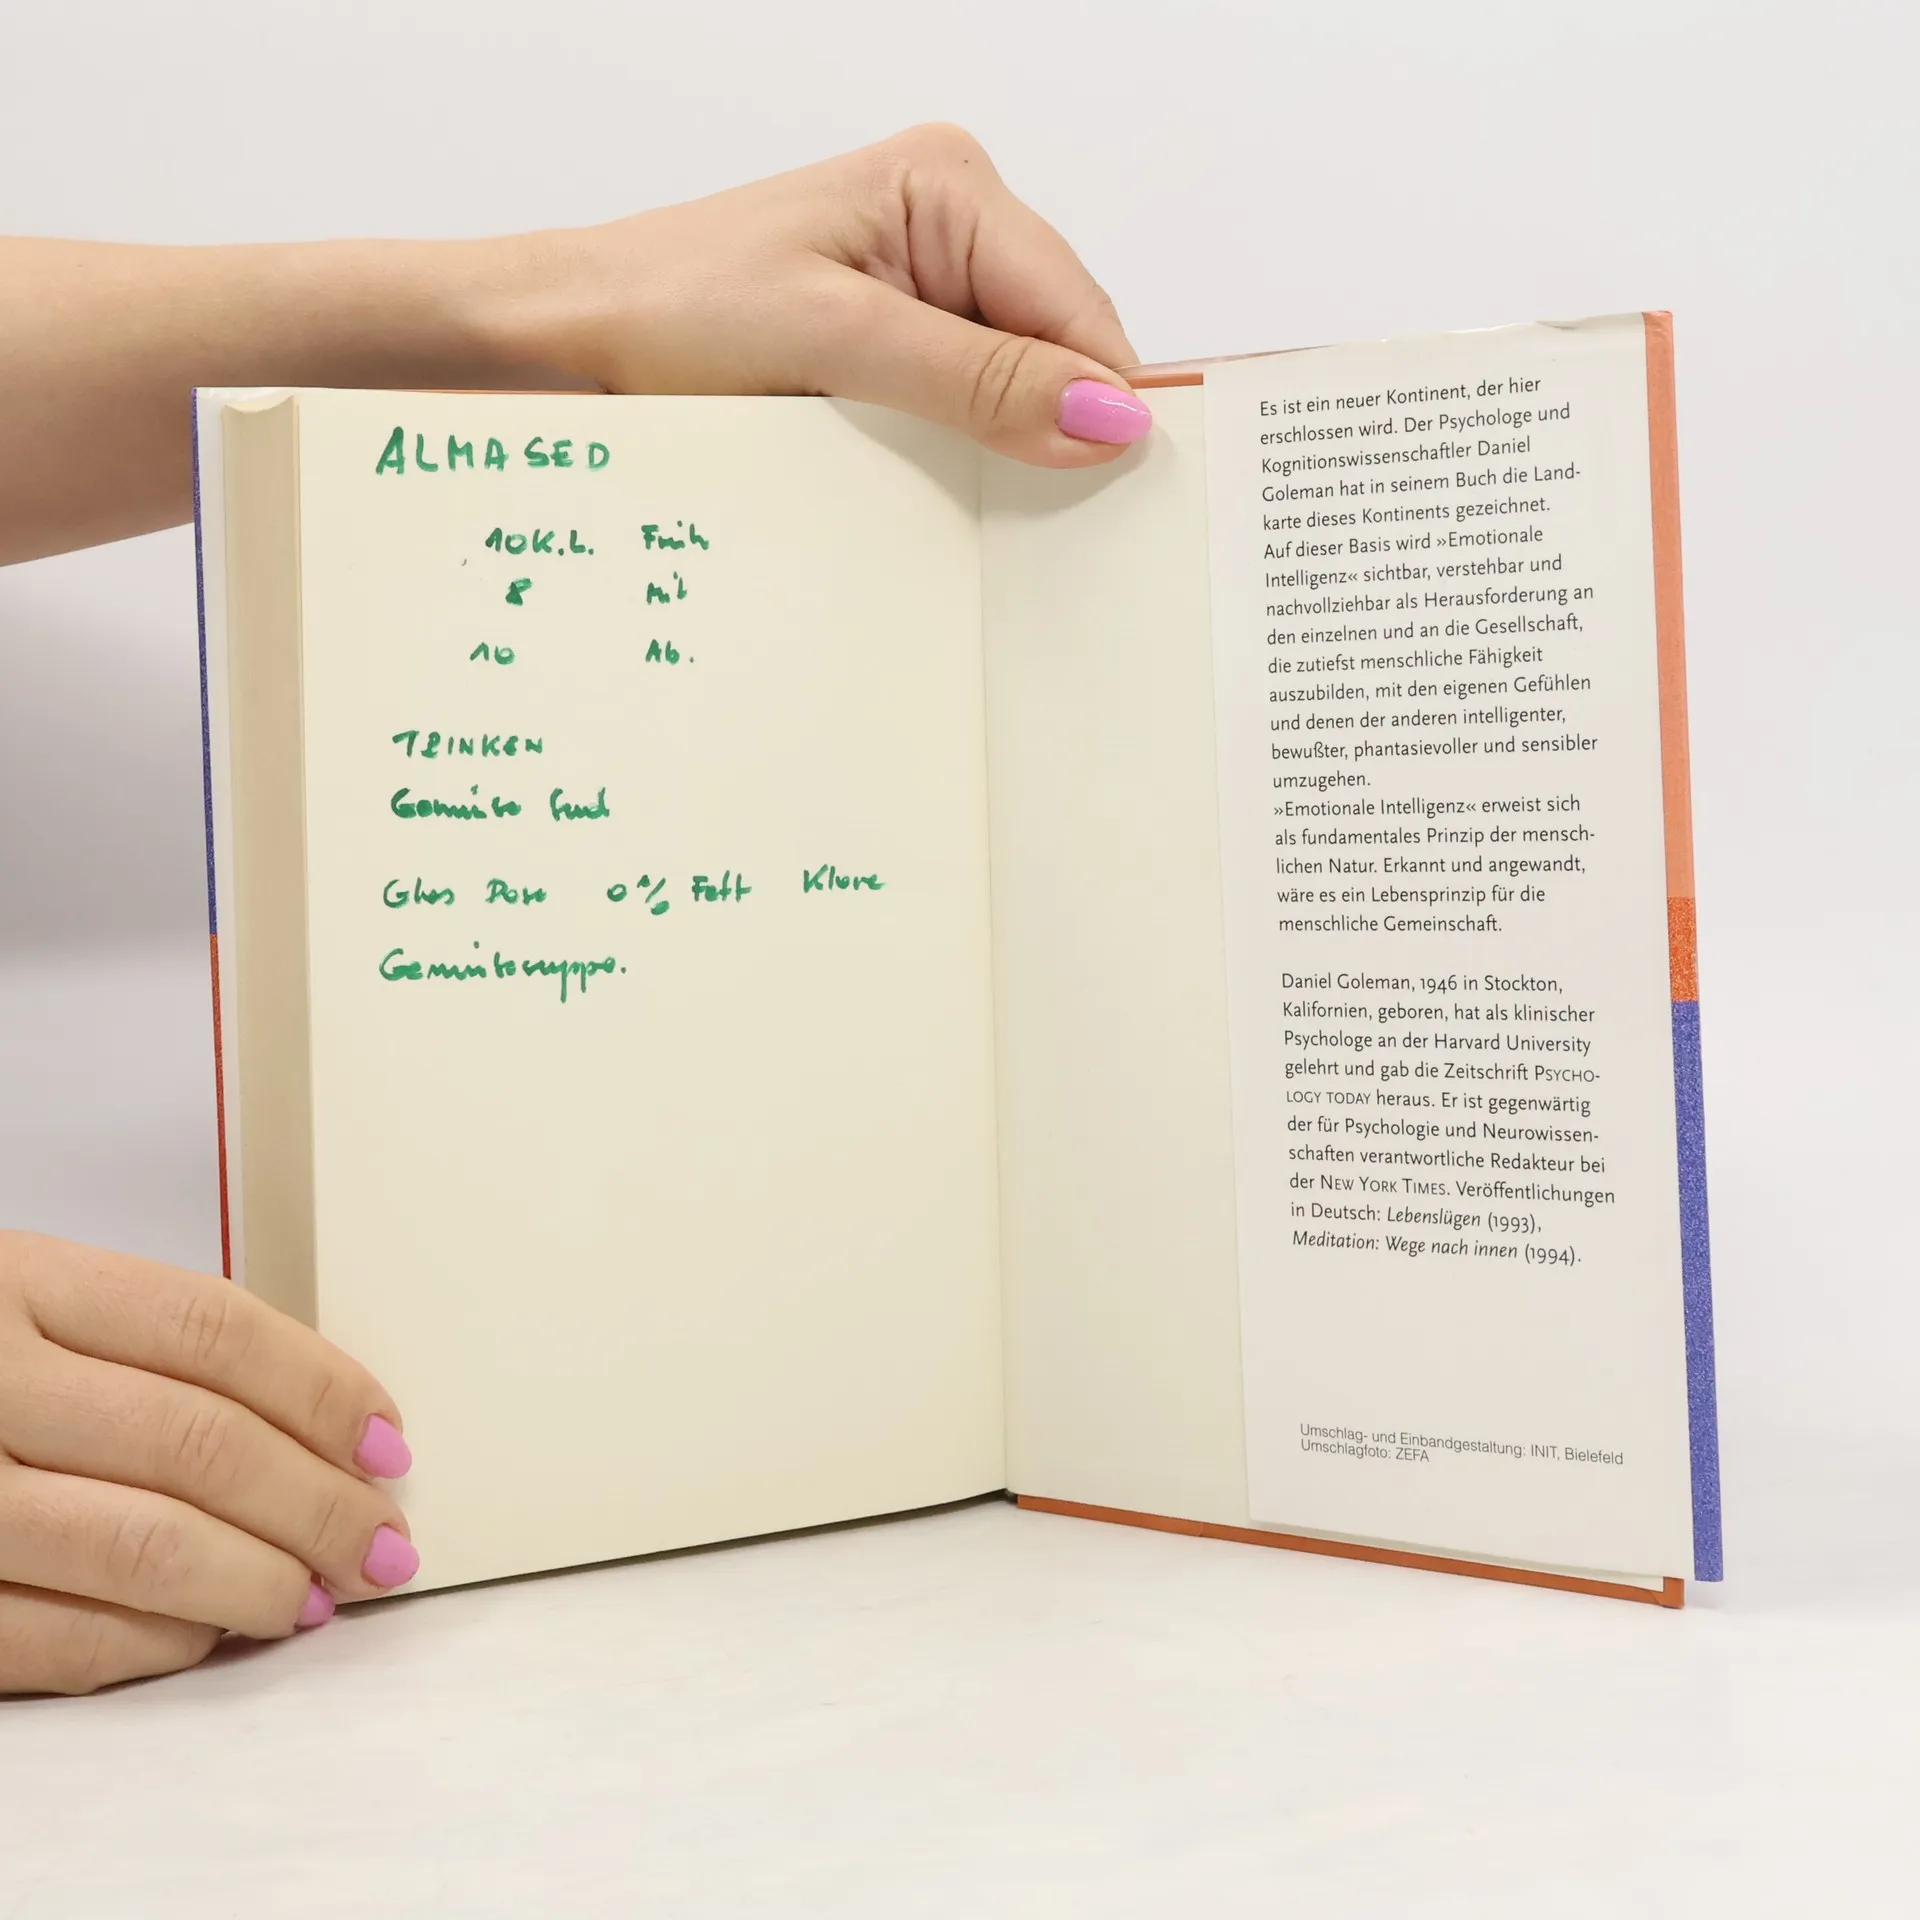 ALMASED
10 K.L. Früh
8 Mit
10 Ab.
TRINKEN
Gemüse
Glas Dose 0% Fett Klare
Gemüsesuppe.
Es ist ein neuer Kontinent, der hier
erschlossen wird. Der Psychologe und
Kognitionswissenschaftler Daniel
Goleman hat in seinem Buch die Land-
karte dieses Kontinents gezeichnet.
Auf dieser Basis wird »Emotionale
Intelligenz« sichtbar, verstehbar und
nachvollziehbar als Herausforderung an
den einzelnen und an die Gesellschaft,
die zutiefst menschliche Fähigkeit
auszubilden, mit den eigenen Gefühlen
und denen der anderen intelligenter,
bewußter, phantasievoller und sensibler
umzugehen.
»Emotionale Intelligenz« erweist sich
als fundamentales Prinzip der mensch-
lichen Natur. Erkannt und angewandt,
wäre es ein Lebensprinzip für die
menschliche Gemeinschaft.
Daniel Goleman, 1946 in Stockton,
Kalifornien, geboren, hat als klinischer
Psychologe an der Harvard University
gelehrt und gab die Zeitschrift PSYCHO-
LOGY TODAY heraus. Er ist gegenwärtig
der für Psychologie und Neurowissen-
schaften verantwortliche Redakteur bei
der NEW YORK TIMES. Veröffentlichungen
in Deutsch: Lebenslügen (1993),
Meditation: Wege nach innen (1994).
Umschlag- und Einbandgestaltung: INIT, Bielefeld
Umschlagfoto: ZEFA